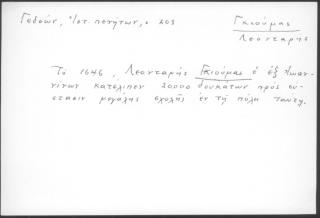 Γεδεών, Πατ. πενήτων, σ 203
Γκιούμας
Λεοντάρης
Τὸ 1646, Λεοντάρης Γκιούμας ὁ ἐξ Ἰωαν-
νίνων κατέλιπεν 20000 δουκάτων πρὸς σύ-
στασιν μεγάλης σχολῆς ἐν τῇ πόλει ταύτῃ.